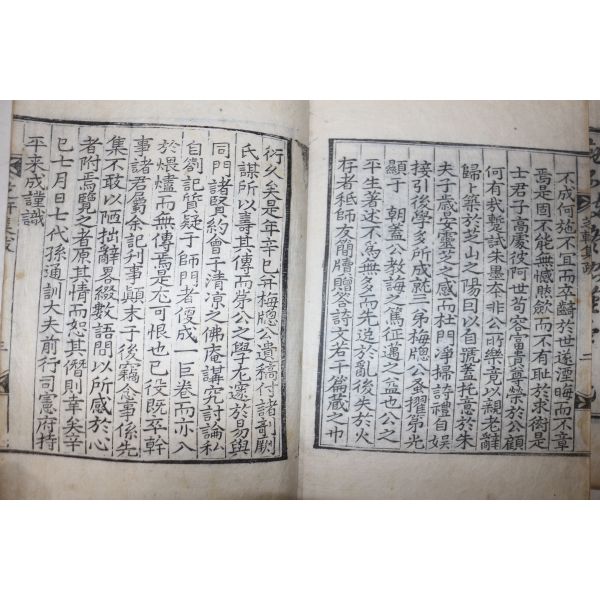 不成何施不宜而卒齟齬於世遂湮晦而不章
焉是固不能無憾然歛而不有耻於求衒是
士君子高處彼阿世苟容富貴尊榮於公顧
何有我蹔試朱墨夲非公所樂竟以親老辭
歸上築於芝山之陽曰以自號盖托意於朱
夫子歲晏靈芝之感而杜門淨掃詩禮自娛
接引後學多所成就三弟梅牕公蚤擢第光
顯于 朝盖公教誨之篤征邁之益也公之
平生著述不爲無多而先逸於亂後失於火
存者秪師友簡牘贈答詩文若干篇藏之巾
衍久矣是年辛巳弁梅牕公遺稿付諸剞劂
氏謀所以壽其傳而芾公之學尤邃於易與
同門諸賢約會于清凉之佛庵講究討論私
自劄記質疑于師門者便成一巨卷而亦入
於煨燼而無傳焉是尤可恨也已役既卒幹
事諸君屬余記刋事顚末于後竊惟事係先
集不敢以陋拙辭畧綴數語間以所感於心
者附焉覽之者原其情而恕其僭則幸矣辛
巳七月日七代孫通訓大夫前行司憲府持
平来成謹識